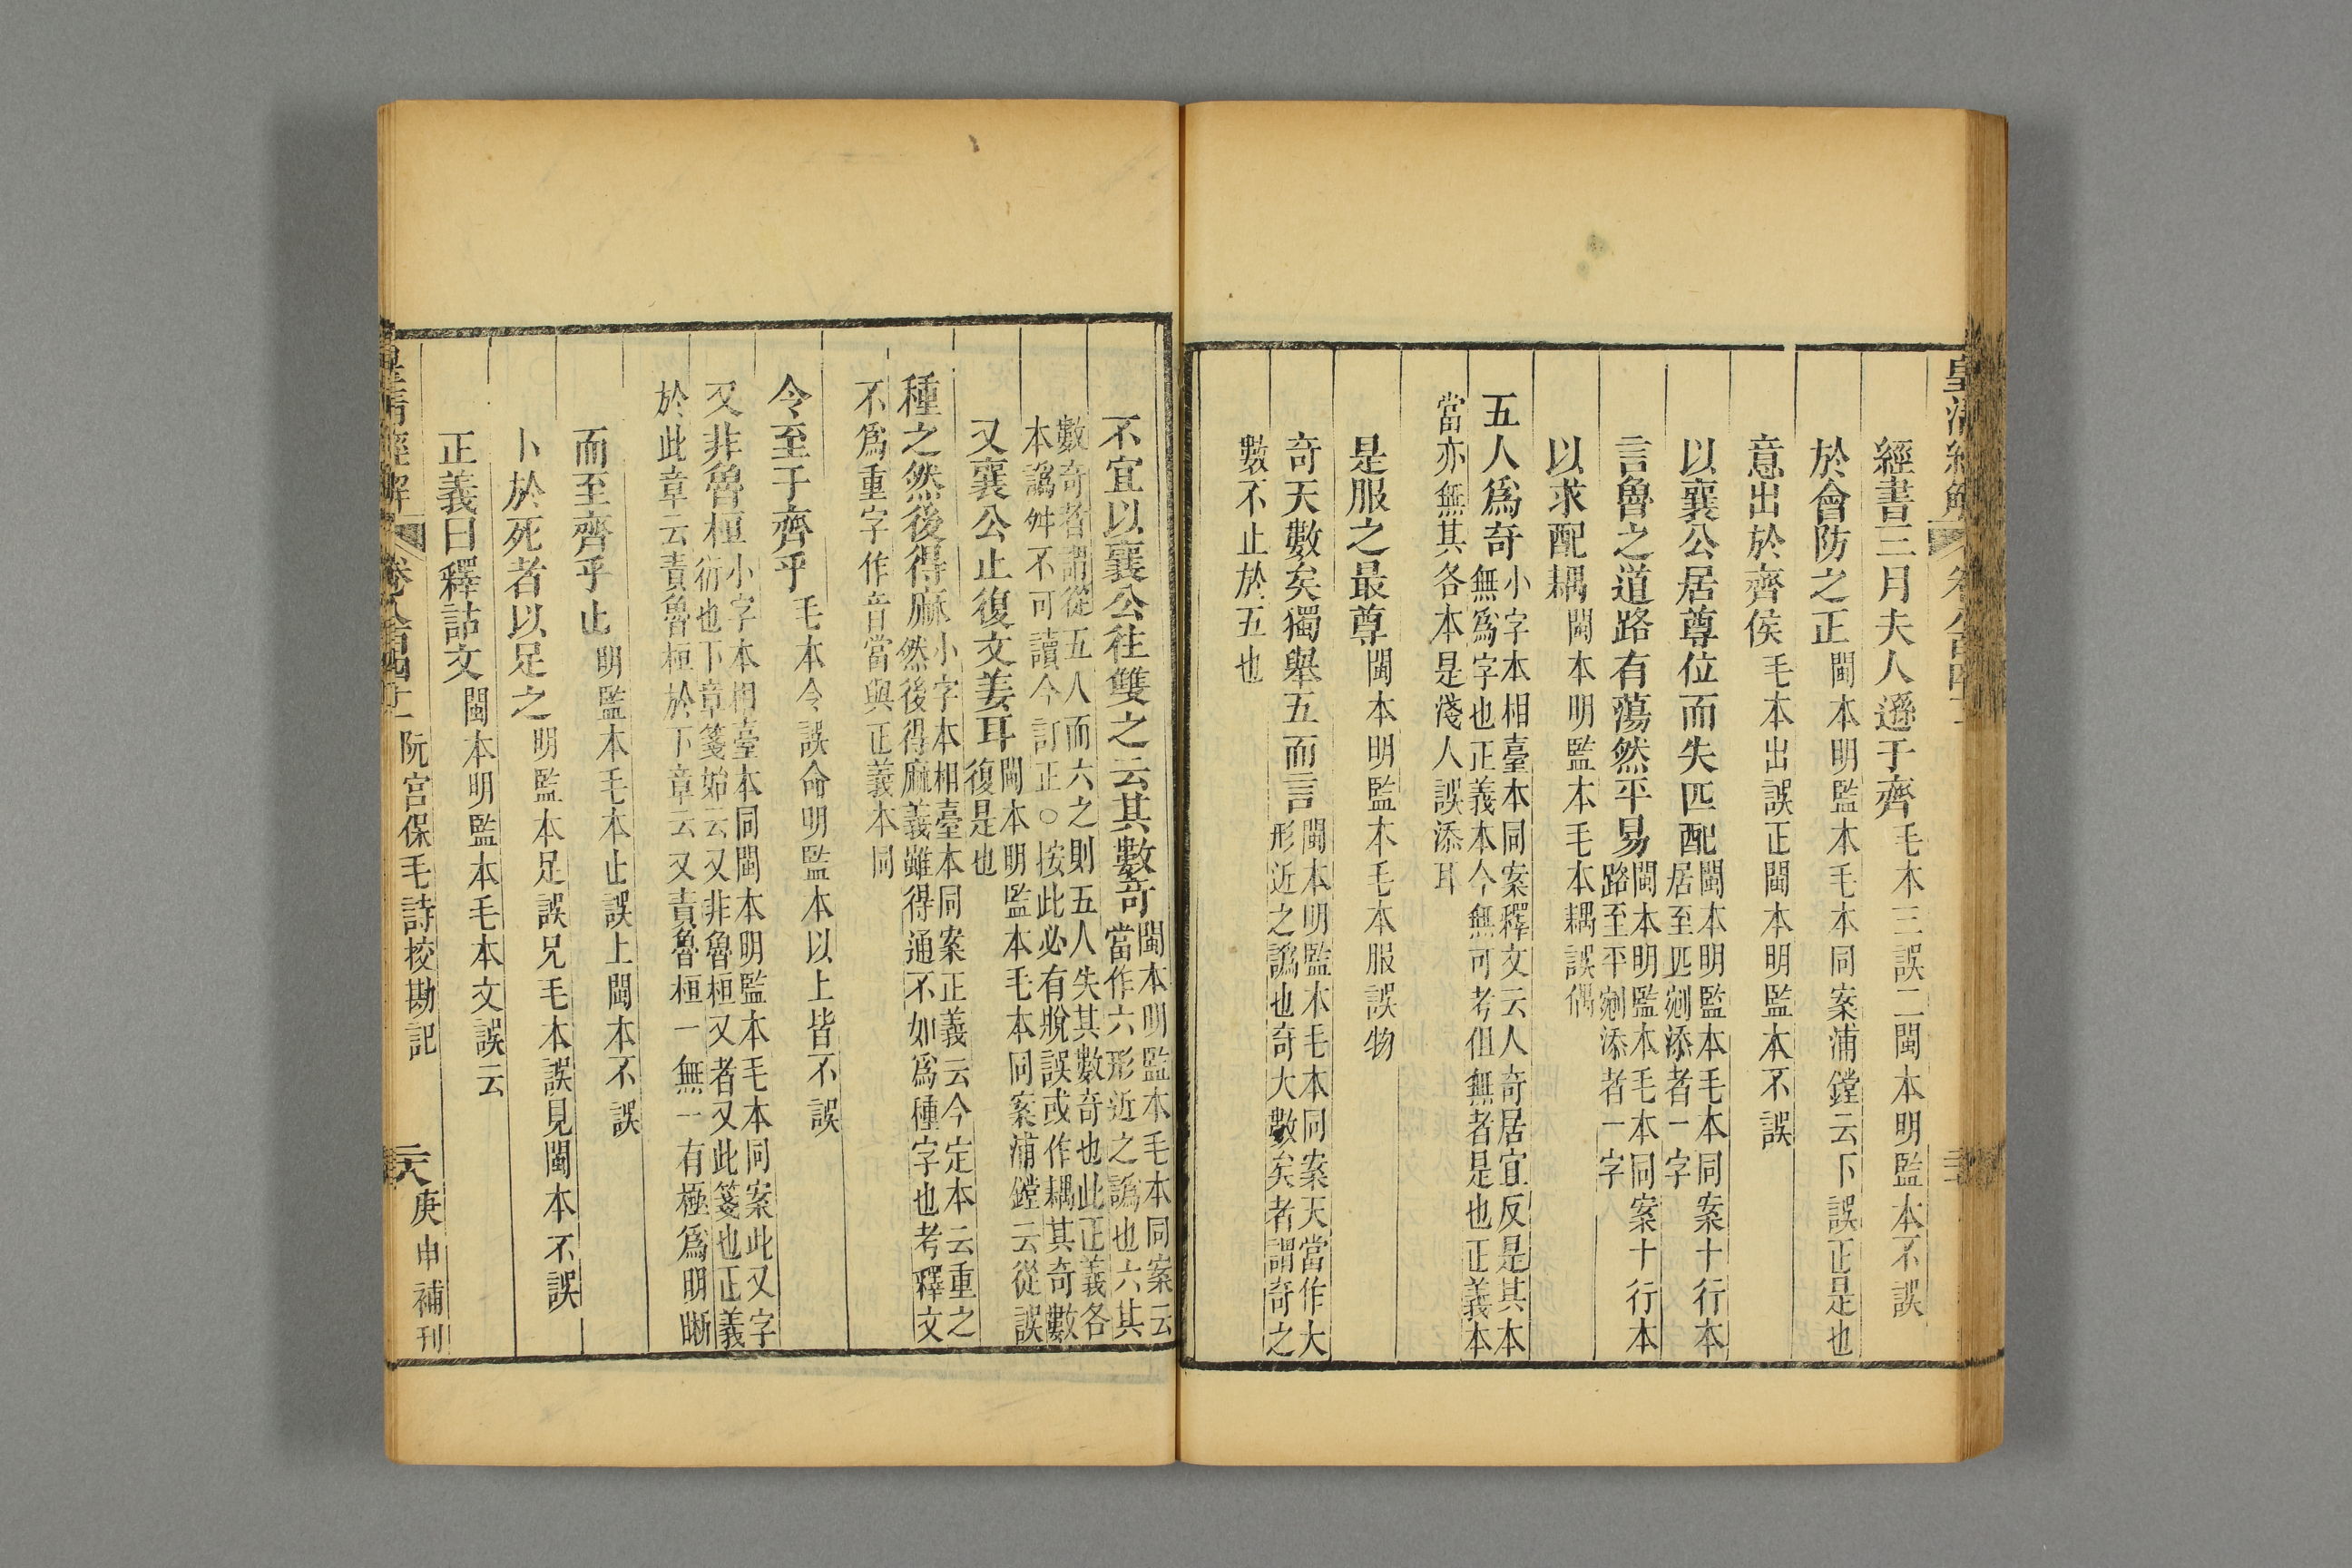 皇清經解
經書三月夫人遜于齊毛本三誤二閩本明監本不誤
於會防之正閩本明監本毛本同案浦鏜云下誤正是也
意出於齊侯毛本出誤正閩本明監本不誤
以襄公居尊位而失匹配閩本明監本毛本同案十行本
居至匹剜添者一字
言魯之道路有蕩然平易閩本明監本毛本同案十行本
路至平剜添者一字
以求配耦閩本明監本毛本耦誤偶
五人爲奇小字本相臺本同案釋文云人奇居宜反是其本
無爲字也正義本今無可考但無者是也正義本
當亦無其各本是淺人誤添耳
是服之最尊閩本明監本毛本服誤物
奇天數矣獨舉五而言閩本明監本毛本同案天當作大
形近之譌也奇大數矣者謂奇之
數不止於五也
不宜以襄公往雙之云其數奇閩本明監本毛本同案云
當作六形近之譌也六其
數奇者謂從五人而六之則五人失其數奇也此正義各
本譌舛不可讀今訂正○按此必有脫誤或作耦其奇數
又襄公止復文姜耳閩本明監本毛本同案浦鏜云從誤
復是也
種之然後得麻小字本相臺本同案正義云今定本云重之
然後得麻義雖得通不如爲種字也考釋文
不爲重字作音當與正義本同
令至于齊乎毛本令誤命明監本以上皆不誤
又非魯桓小字本相臺本同閩本明監本毛本同案此又字
衍也下章箋始云又非魯桓又者又此箋也正義
於此章云責魯桓於下章云又責魯桓一無一有極爲明晰
而至齊乎止明監本毛本止誤上閩本不誤
卜於死者以足之明監本足誤兄毛本誤見閩本不誤
正義曰釋詁文閩本明監本毛本文誤云
皇清經解 卷八百四十二 阮宮保毛詩挍勘記 二六 庚申補刊